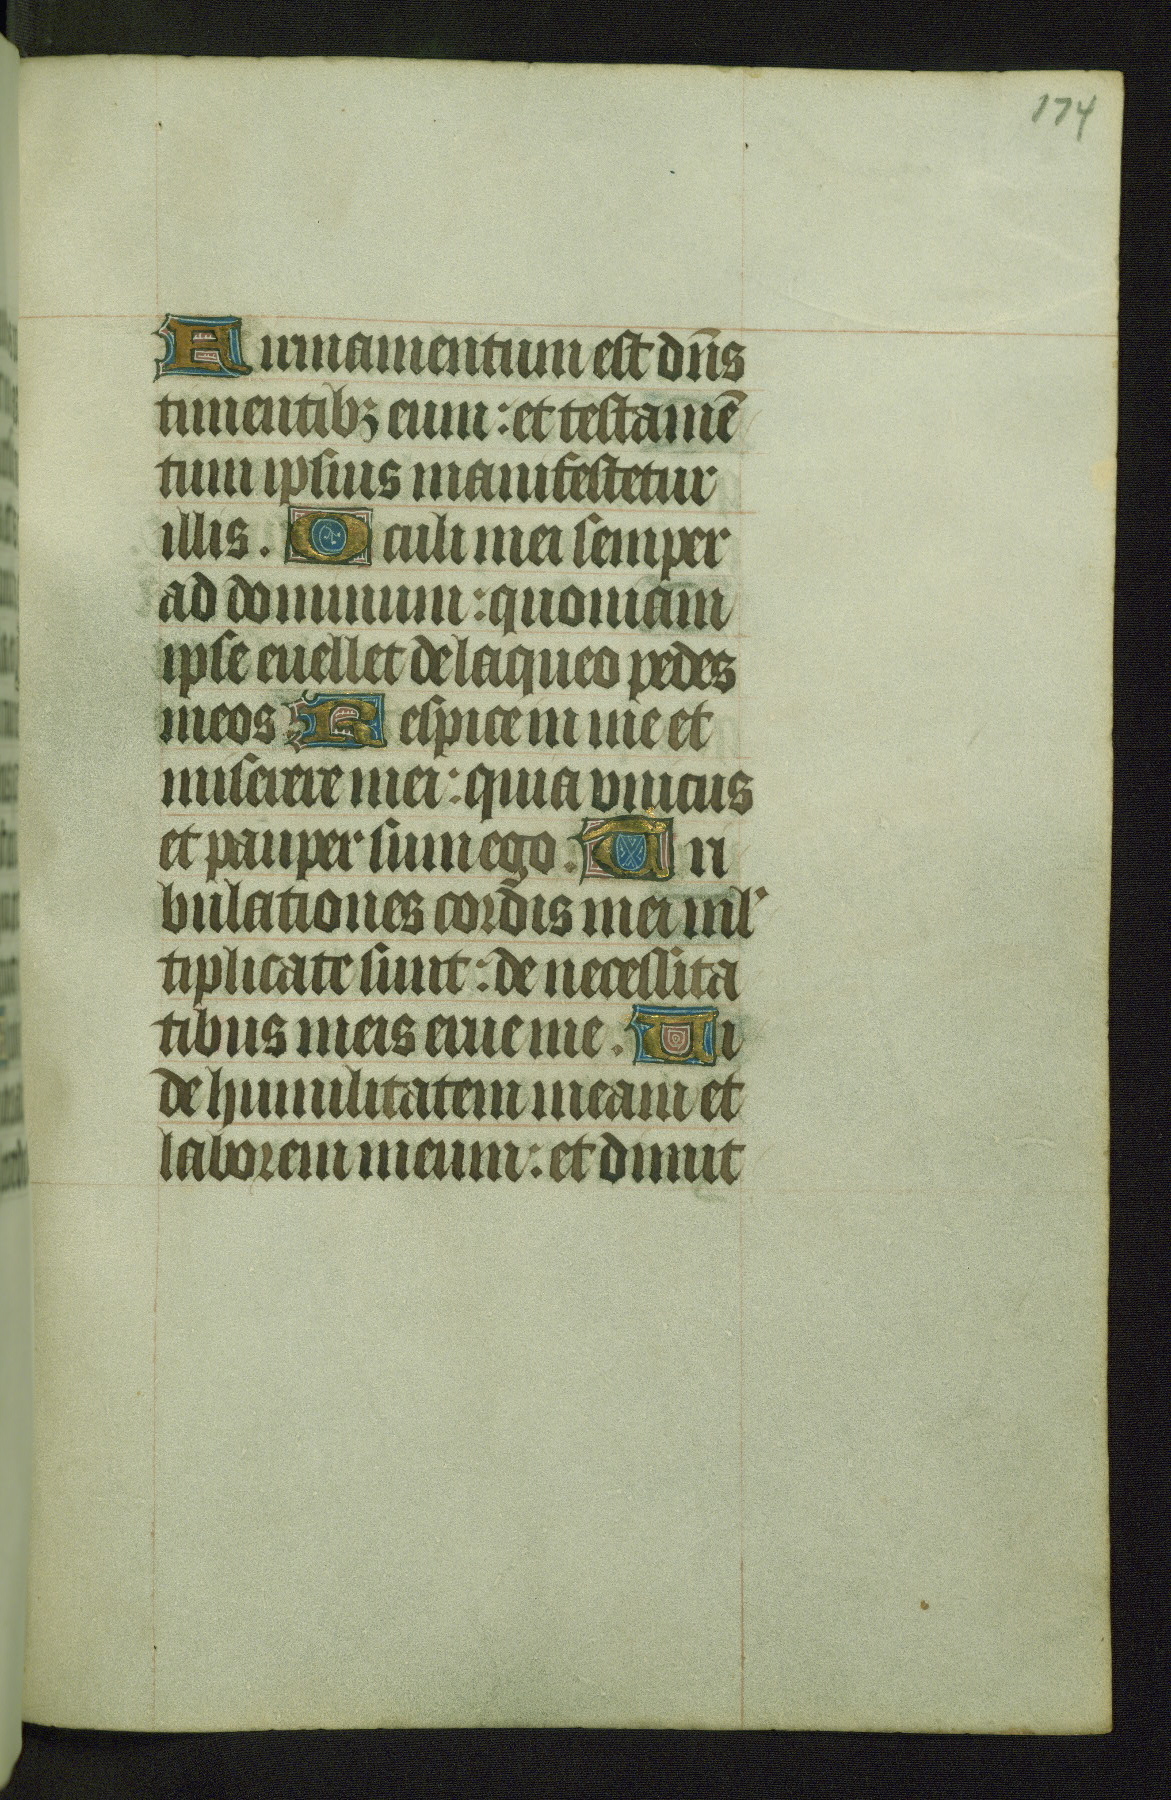 174
Firmamentum est dn̄s
timentibꝫ eum : et testamē
tum ipsius manifestetur
illis . Oculi mei semper
ad dominum : quoniam
ipse euellet de laqueo pedes
meos . Respice in me et
miserere mei : quia vnicus
et pauper sum ego . Tri
bulationes cordis mei ml̾
tiplicate sunt : de necessita
tibus meis erue me . Vi
de humilitatem meam et
laborem meum : et dimit